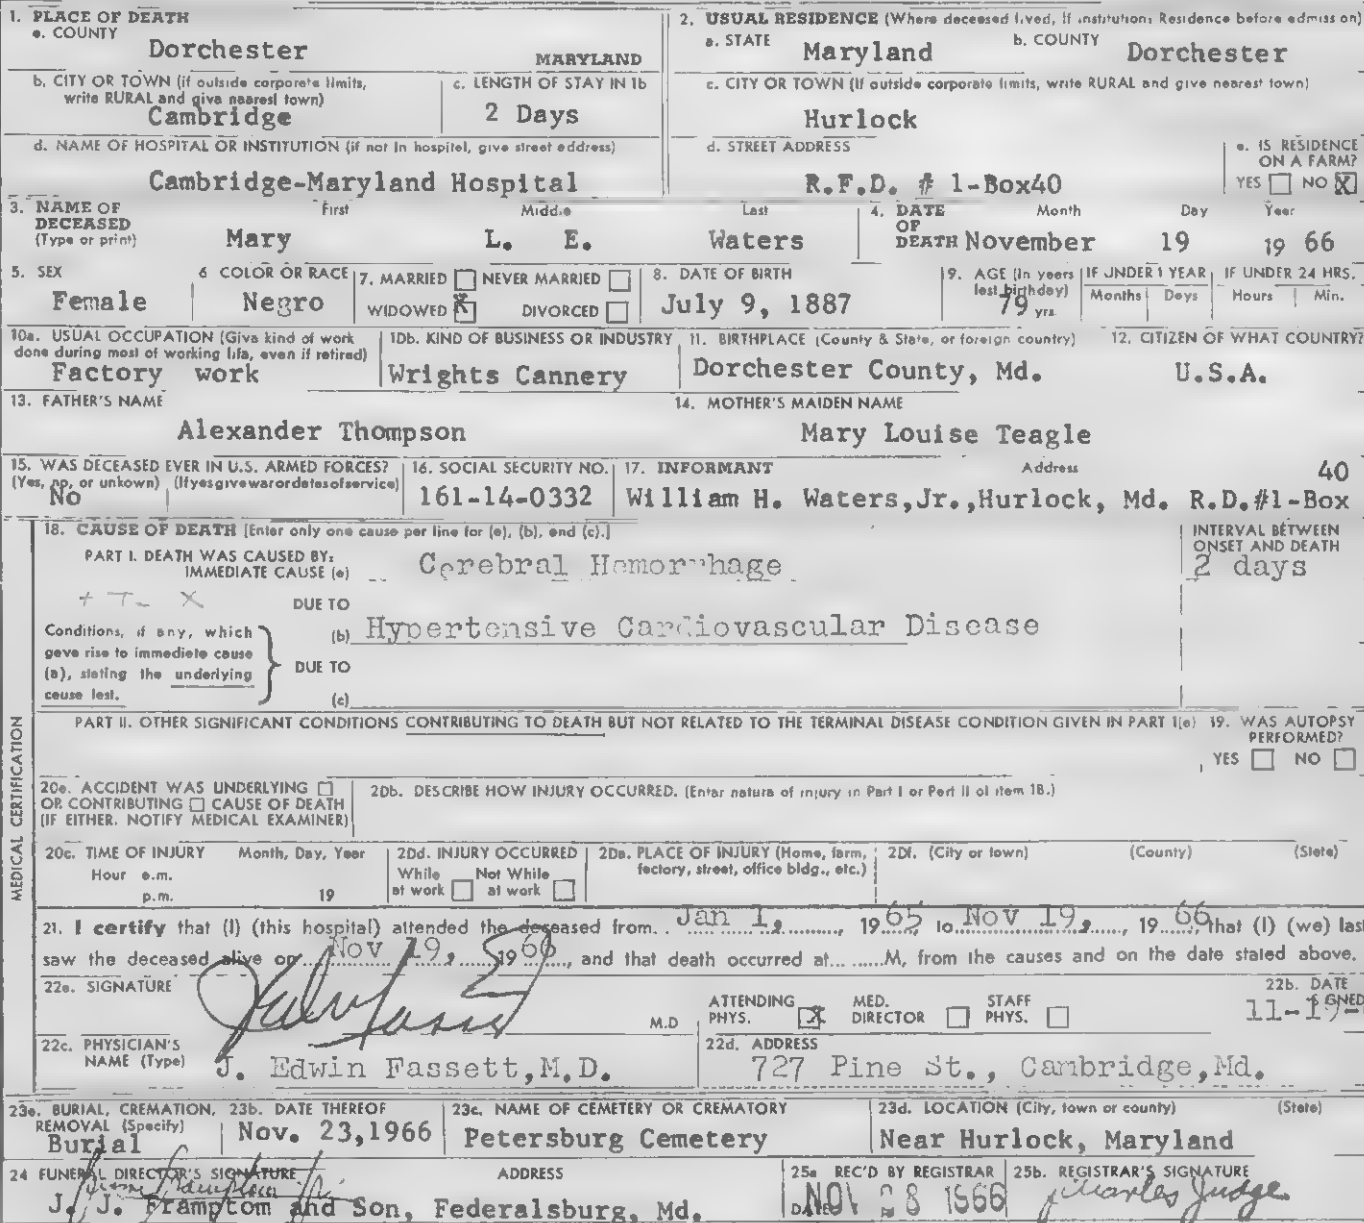 1. PLACE OF DEATH
a. COUNTY
Dorchester
MARYLAND
b. CITY OR TOWN (if outside corporate limits,
write RURAL and give nearest town)
Cambridge
c. LENGTH OF STAY IN 1b
2 Days
d. NAME OF HOSPITAL OR INSTITUTION (if not in hospital, give street address)
Cambridge-Maryland Hospital
2. USUAL RESIDENCE (Where deceased lived, If institution: Residence before admission)
a. STATE
Maryland
b. COUNTY
Dorchester
c. CITY OR TOWN (If outside corporate limits, write RURAL and give nearest town)
Hurlock
d. STREET ADDRESS
R.F.D. # 1-Box40
e. IS RESIDENCE
ON A FARM?
YES NO X
3. NAME OF
DECEASED
(Type or print)
First Middle Last
Mary L. E. Waters
4. DATE
OF
DEATH
Month Day Year
November 19 19 66
5. SEX
Female
6 COLOR OR RACE
Negro
7. MARRIED NEVER MARRIED
WIDOWED X DIVORCED
8. DATE OF BIRTH
July 9, 1887
9. AGE (In years
last birthday)
79 yrs.
IF UNDER 1 YEAR
Months Days
IF UNDER 24 HRS.
Hours Min.
10a. USUAL OCCUPATION (Give kind of work
done during most of working life, even if retired)
Factory work
10b. KIND OF BUSINESS OR INDUSTRY
Wrights Cannery
11. BIRTHPLACE (County & State, or foreign country)
Dorchester County, Md.
12. CITIZEN OF WHAT COUNTRY?
U.S.A.
13. FATHER'S NAME
Alexander Thompson
14. MOTHER'S MAIDEN NAME
Mary Louise Teagle
15. WAS DECEASED EVER IN U.S. ARMED FORCES?
(Yes, no, or unkown) (Ifyesgivewarordatesofservice)
No
16. SOCIAL SECURITY NO.
161-14-0332
17. INFORMANT Address
40
William H. Waters,Jr.,Hurlock, Md. R.D.#1-Box
MEDICAL CERTIFICATION
18. CAUSE OF DEATH [Enter only one cause per line for (a), (b), and (c).]
PART I. DEATH WAS CAUSED BY:
IMMEDIATE CAUSE (a) Cerebral Hemorrhage
INTERVAL BETWEEN
ONSET AND DEATH
2 days
DUE TO
Conditions, if any, which
gave rise to immediate cause
(a), stating the underlying
cause last.
(b) Hypertensive Cardiovascular Disease
DUE TO
(c)
PART II. OTHER SIGNIFICANT CONDITIONS CONTRIBUTING TO DEATH BUT NOT RELATED TO THE TERMINAL DISEASE CONDITION GIVEN IN PART I(a)
19. WAS AUTOPSY
PERFORMED?
YES NO
20a. ACCIDENT WAS UNDERLYING
OR CONTRIBUTING CAUSE OF DEATH
(IF EITHER, NOTIFY MEDICAL EXAMINER)
20b. DESCRIBE HOW INJURY OCCURRED. (Enter nature of injury in Part I or Part II of item 18.)
20c. TIME OF INJURY Month, Day, Year
Hour a.m.
p.m. 19
20d. INJURY OCCURRED
While Not While
at work at work
20e. PLACE OF INJURY (Home, farm,
factory, street, office bldg., etc.)
20f. (City or town) (County) (State)
21. I certify that (I) (this hospital) attended the deceased from Jan 1, 1965 to Nov 19, 1966, that (I) (we) last
saw the deceased alive on Nov 19, 1966, and that death occurred at ......M, from the causes and on the date stated above.
22a. SIGNATURE
M.D
ATTENDING
PHYS. X
MED.
DIRECTOR
STAFF
PHYS.
22b. DATE
SIGNED
11-19-
22c. PHYSICIAN'S
NAME (Type)
J. Edwin Fassett,M.D.
22d. ADDRESS
727 Pine St., Cambridge,Md.
23a. BURIAL, CREMATION,
REMOVAL (Specify)
Burial
23b. DATE THEREOF
Nov. 23,1966
23c. NAME OF CEMETERY OR CREMATORY
Petersburg Cemetery
23d. LOCATION (City, town or county) (State)
Near Hurlock, Maryland
24 FUNERAL DIRECTOR'S SIGNATURE ADDRESS
J. J. Framptom and Son, Federalsburg, Md.
25a REC'D BY REGISTRAR
DATE NOV 28 1966
25b. REGISTRAR'S SIGNATURE
Charles Judge